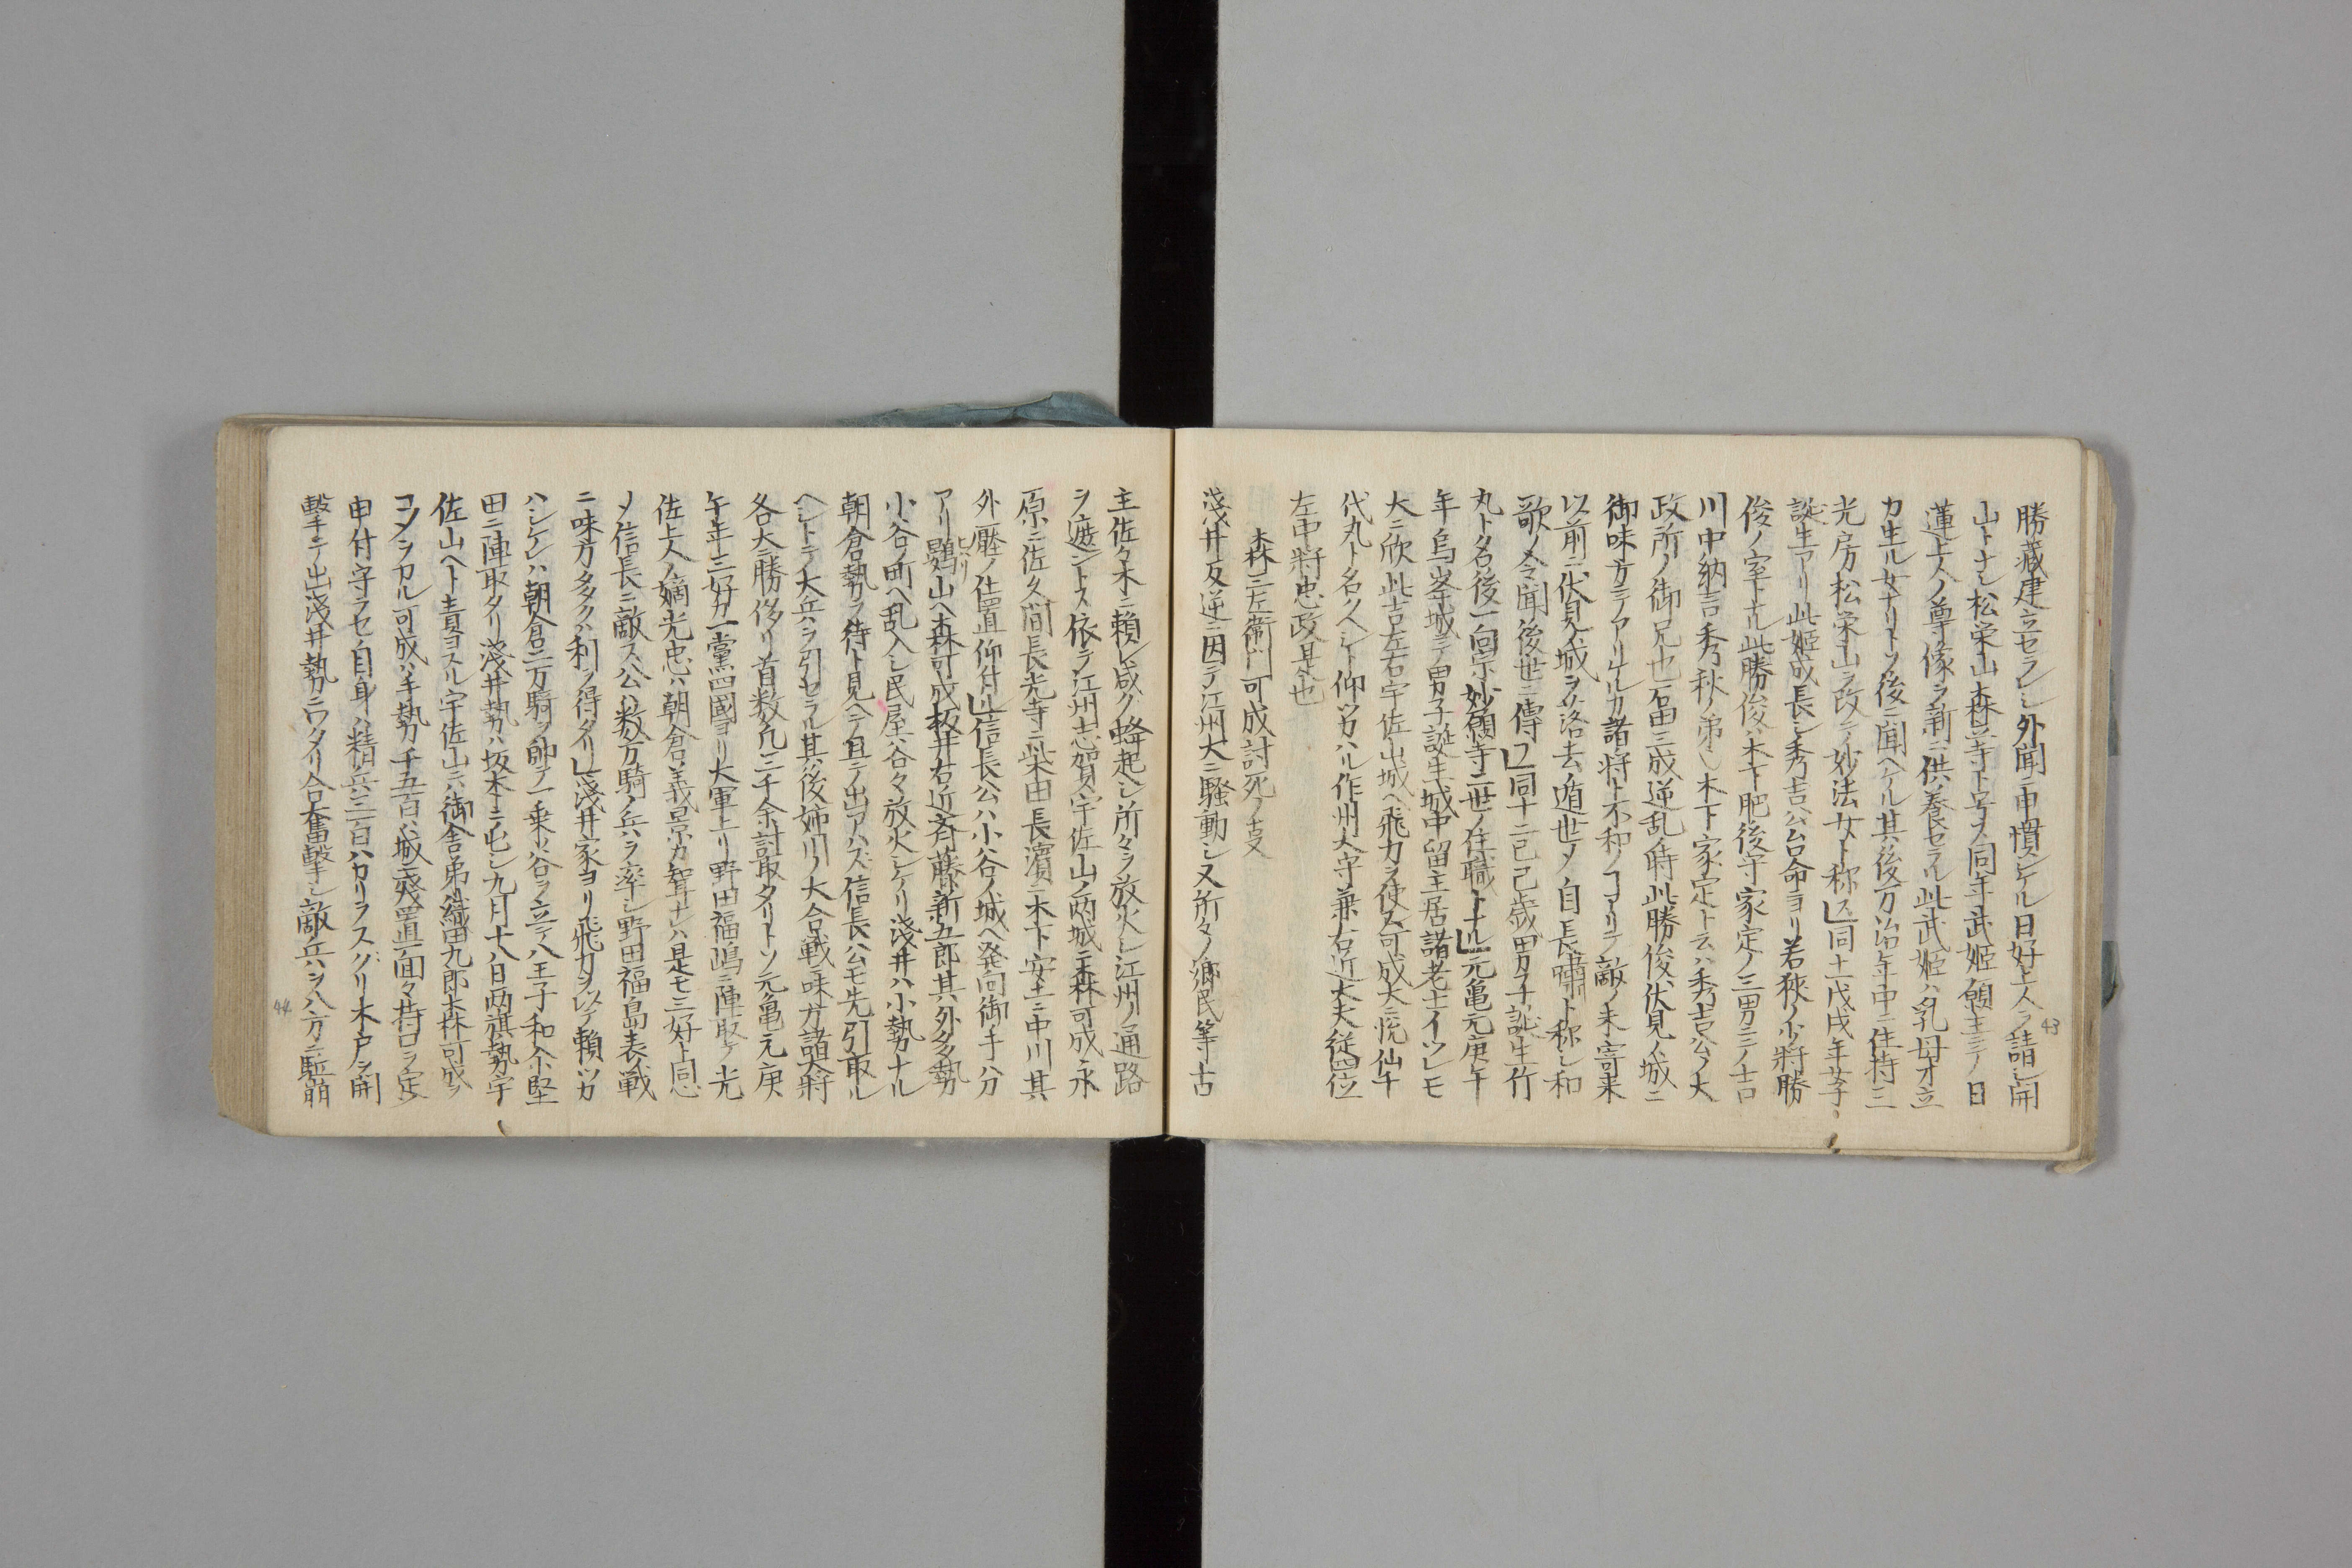 勝藏建立セラレシ外聞ニ申慣シケル日好上人ヲ請シ開
山トナシ松栄山森興寺ト号ス同年武姫領主三ノ日
蓮上人ノ尊像ヲ新ニ供養セラル此武姫ハ乳母才立
カ生ル女ナリトソ後ニ聞ヘケル其後万治年中ニ住持三
光房松栄山ヲ改テ妙法女ト称ス同十一戊戌年女子
誕生アリ此姫成長シ秀吉公台命ヨリ若狭ノ少将勝
俊ノ室トナル此勝俊ハ木下肥後守家定ノ三男三ノ吉
川中納言秀秋ノ弟也木下家定ト云ハ秀吉公ノ大
政所ノ御兄也石田三成逆乱ノ時此勝俊伏見ノ城ニ
御味方テアリケルカ諸将ト不和ノコトアリテ敵ノ未寄来
以前ニ伏見ノ城ヲ落去ノ遁世シテ自長嘯ト称シ和
歌ノ令聞後世ニ傳フ同十二己巳歳男子誕生竹
丸ト名後一向宗妙願寺二世ノ住職トナル元亀元庚午
年烏峯城ニテ男子誕生城中留主居諸老士イツレモ
大ニ欣此吉左右宇佐山城ヘ飛力ヲ使ス可成大ニ悦仙千
代丸ト名クヘシト仰ツカハル作州大守兼右近大夫従四位
左中将忠政是也
森三左衛門可成討死ノ支
淺井反逆ニ因テ江州大ニ騒動シ又所々ノ郷民等古
主佐々木ニ頼レ咸ク蜂起シ所々ヲ放火シ江州ノ通路
ヲ遮ントス依テ江州志賀ノ宇佐山ノ両城ニ森可成永
原ニ佐久間長光寺ニ柴田長濱ニ木下安土ニ中川其
外歴ノ仕置仰付ル信長公ハ小谷ノ城ヘ発向御手ハ分
アリ鷚山ヘ森可成板井右近斉藤新五郎其外多勢
小谷ノ町ヘ乱入シ民屋谷々放火シケリ淺井ハ小勢ナル
朝倉勢ヲ待ト見ヘテ且テ出アハズ信長公モ先引取ル
ヘシトテ大兵ハラ引セラル其後姉川ノ大合戦ニ味方諸大将
各大ニ勝侈リ首数凡三千余討取タリトソ元亀元庚
午年三好カ一黨四國ヨリ大軍上リ野田福嶋ニ陣取テ光
佐上人ノ嫡光忠ハ朝倉義景カ聟ナレハ是モ三好ト同心
メ信長ニ敵ス公ハ数万騎ノ兵ハラ率シ野田福島表ノ戦
ニ味方多クハ利ヲ得タリ淺井家ヨリ飛力ヲ以テ頼ツカ
ハシケレハ朝倉二万騎ヲ帥テ一乗ノ谷ヲ立テ八王子和余堅
田ニ陣取タリ淺井勢ハ坂本ニ屯シ九月十八日両旗勢宇
佐山ヘト責ヨスル宇佐山ニハ御舎弟織田九郎森可成ノ
コメラカル可成ハ手勢千五百ハ城ニ殘置面々持口ヲ定
申付守ラセ自身ハ精兵三百ハカリヲスグリ木戸ヲ開
撃テ出淺井勢ニワタリ合奮撃シ敵兵ハヲ八方ニ駈崩
43
44